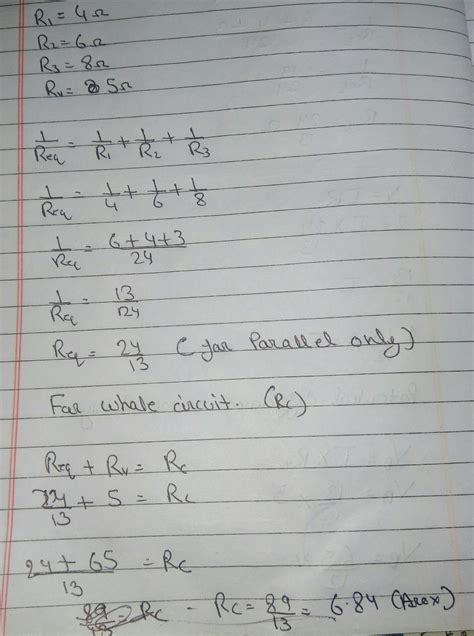 R1 = 4Ω
R2 = 6Ω
R3 = 8Ω
Rv = 5Ω
1/Req = 1/R1 + 1/R2 + 1/R3
1/Req = 1/4 + 1/6 + 1/8
1/Req = 6+4+3/24
1/Req = 13/24
Req = 24/13 (for Parallel only)
For whole circuit. (Rc)
Req + Rv = Rc
24/13 + 5 = Rc
24 + 65/13 = Rc
Rc = 89/13 = 6.84 (Arox)